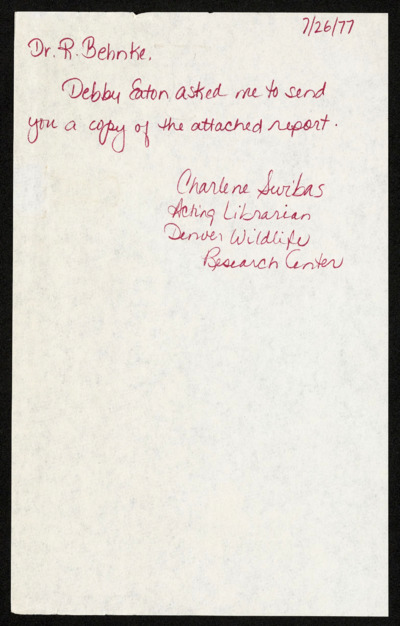 7/26/77
Dr. R. Behnke,
Debby Eaton asked me to send
you a copy of the attached report.
Charlene Swibas
Acting Librarian
Denver Wildlife
Research Center